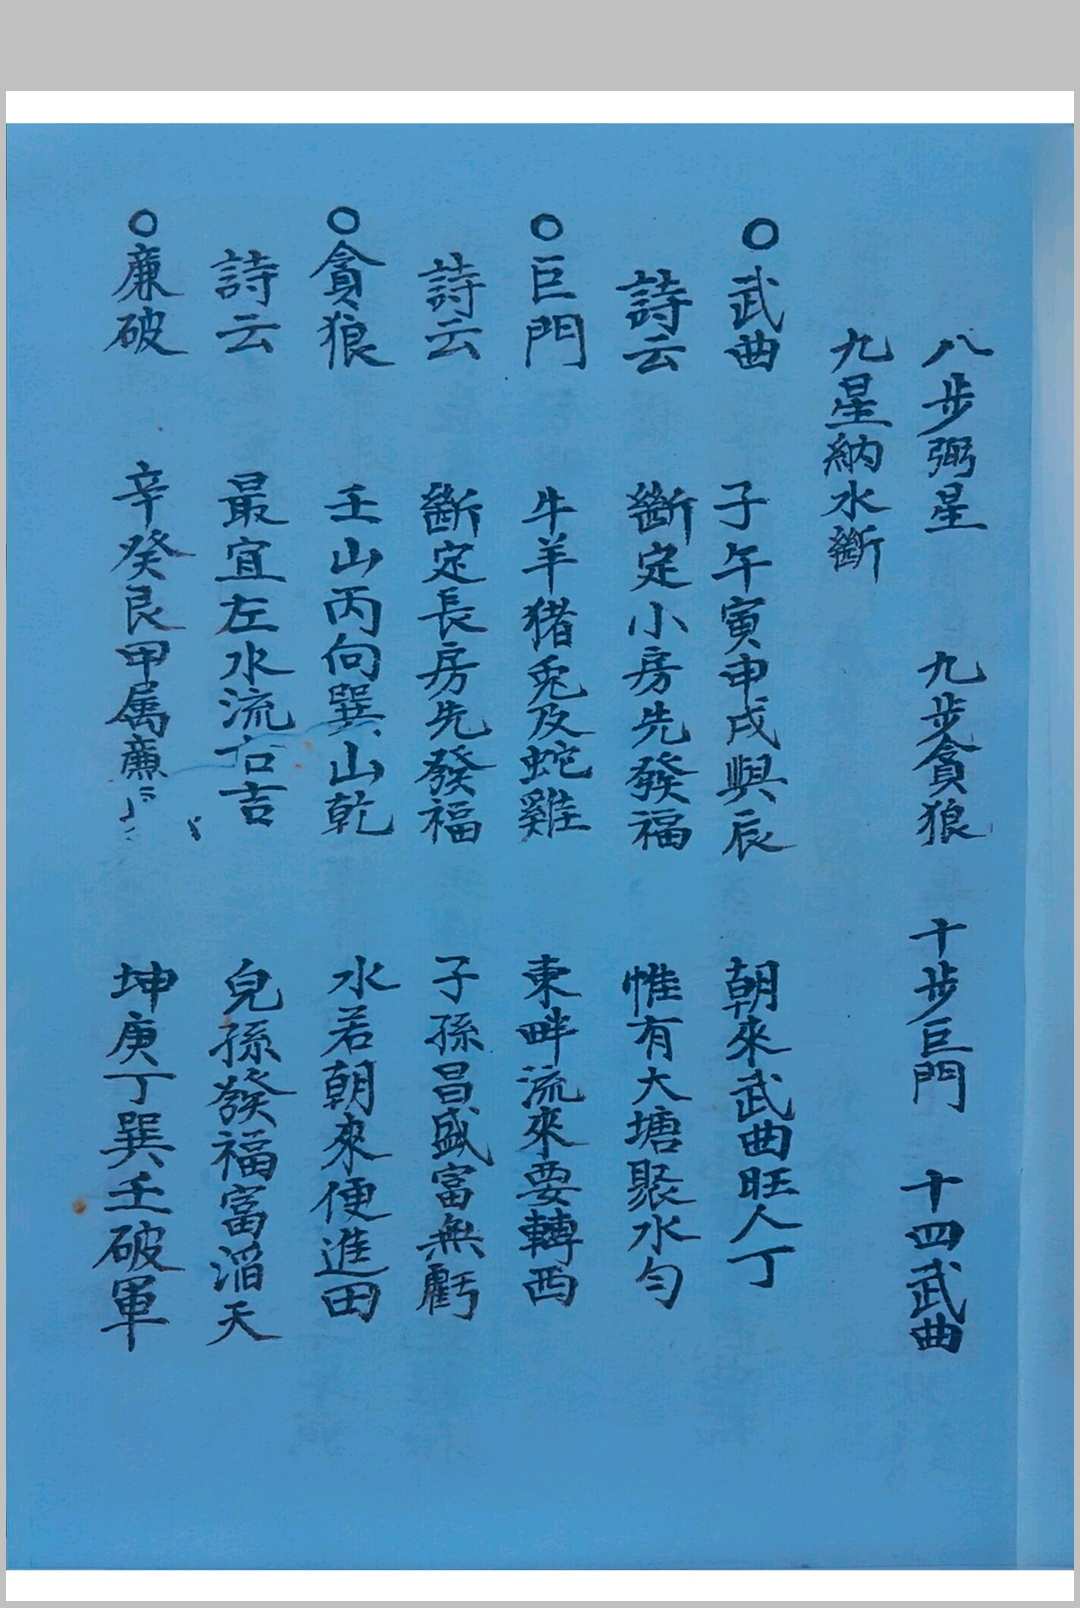 八步弼星 九步貪狼 十步巨門 十四武曲
九星納水斷
○武曲 子午寅申戌與辰 朝來武曲旺人丁
詩云 斷定小房先發福 惟有大塘聚水勻
○巨門 牛羊猪兎及蛇雞 東畔流來要轉西
詩云 斷定長房先發福 子孫昌盛富無虧
○貪狼 壬山丙向巽山乾 水若朝來便進田
詩云 最宜左水流右吉 兒孫發福富滔天
○廉破 辛癸艮甲属廉 坤庚丁巽壬破軍